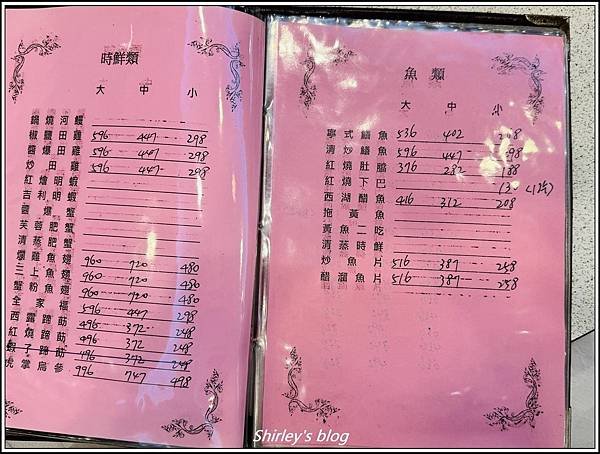 時鮮類
大 中 小
鍋燒河鰻
椒鹽田雞 596 447 298
醬爆田雞 596 447 298
炒田雞 596 447 298
紅燴明蝦
吉利明蝦
醬爆肥蟹
芙蓉肥蟹
清蒸肥蟹
雞魚翅 960 720 480
三上魚翅 960 720 480
蟹粉魚翅 960 720 480
全家福 596 447 298
西露蹄莇 496 372 248
紅燒蹄莇 496 372 248
蝦子蹄莇 496 372 248
虎掌烏參 996 747 498
魚類
大 中 小
寧式鱔魚 536 402 268
清炒鱔魚 596 447 298
紅燒肚 376 282 188
紅燒下巴
西湖醋魚 416 312 208
拖黃魚
黃魚二吃
清蒸時鮮
炒魚片 516 387 258
醋溜魚片 516 387 258
Shirley's blog